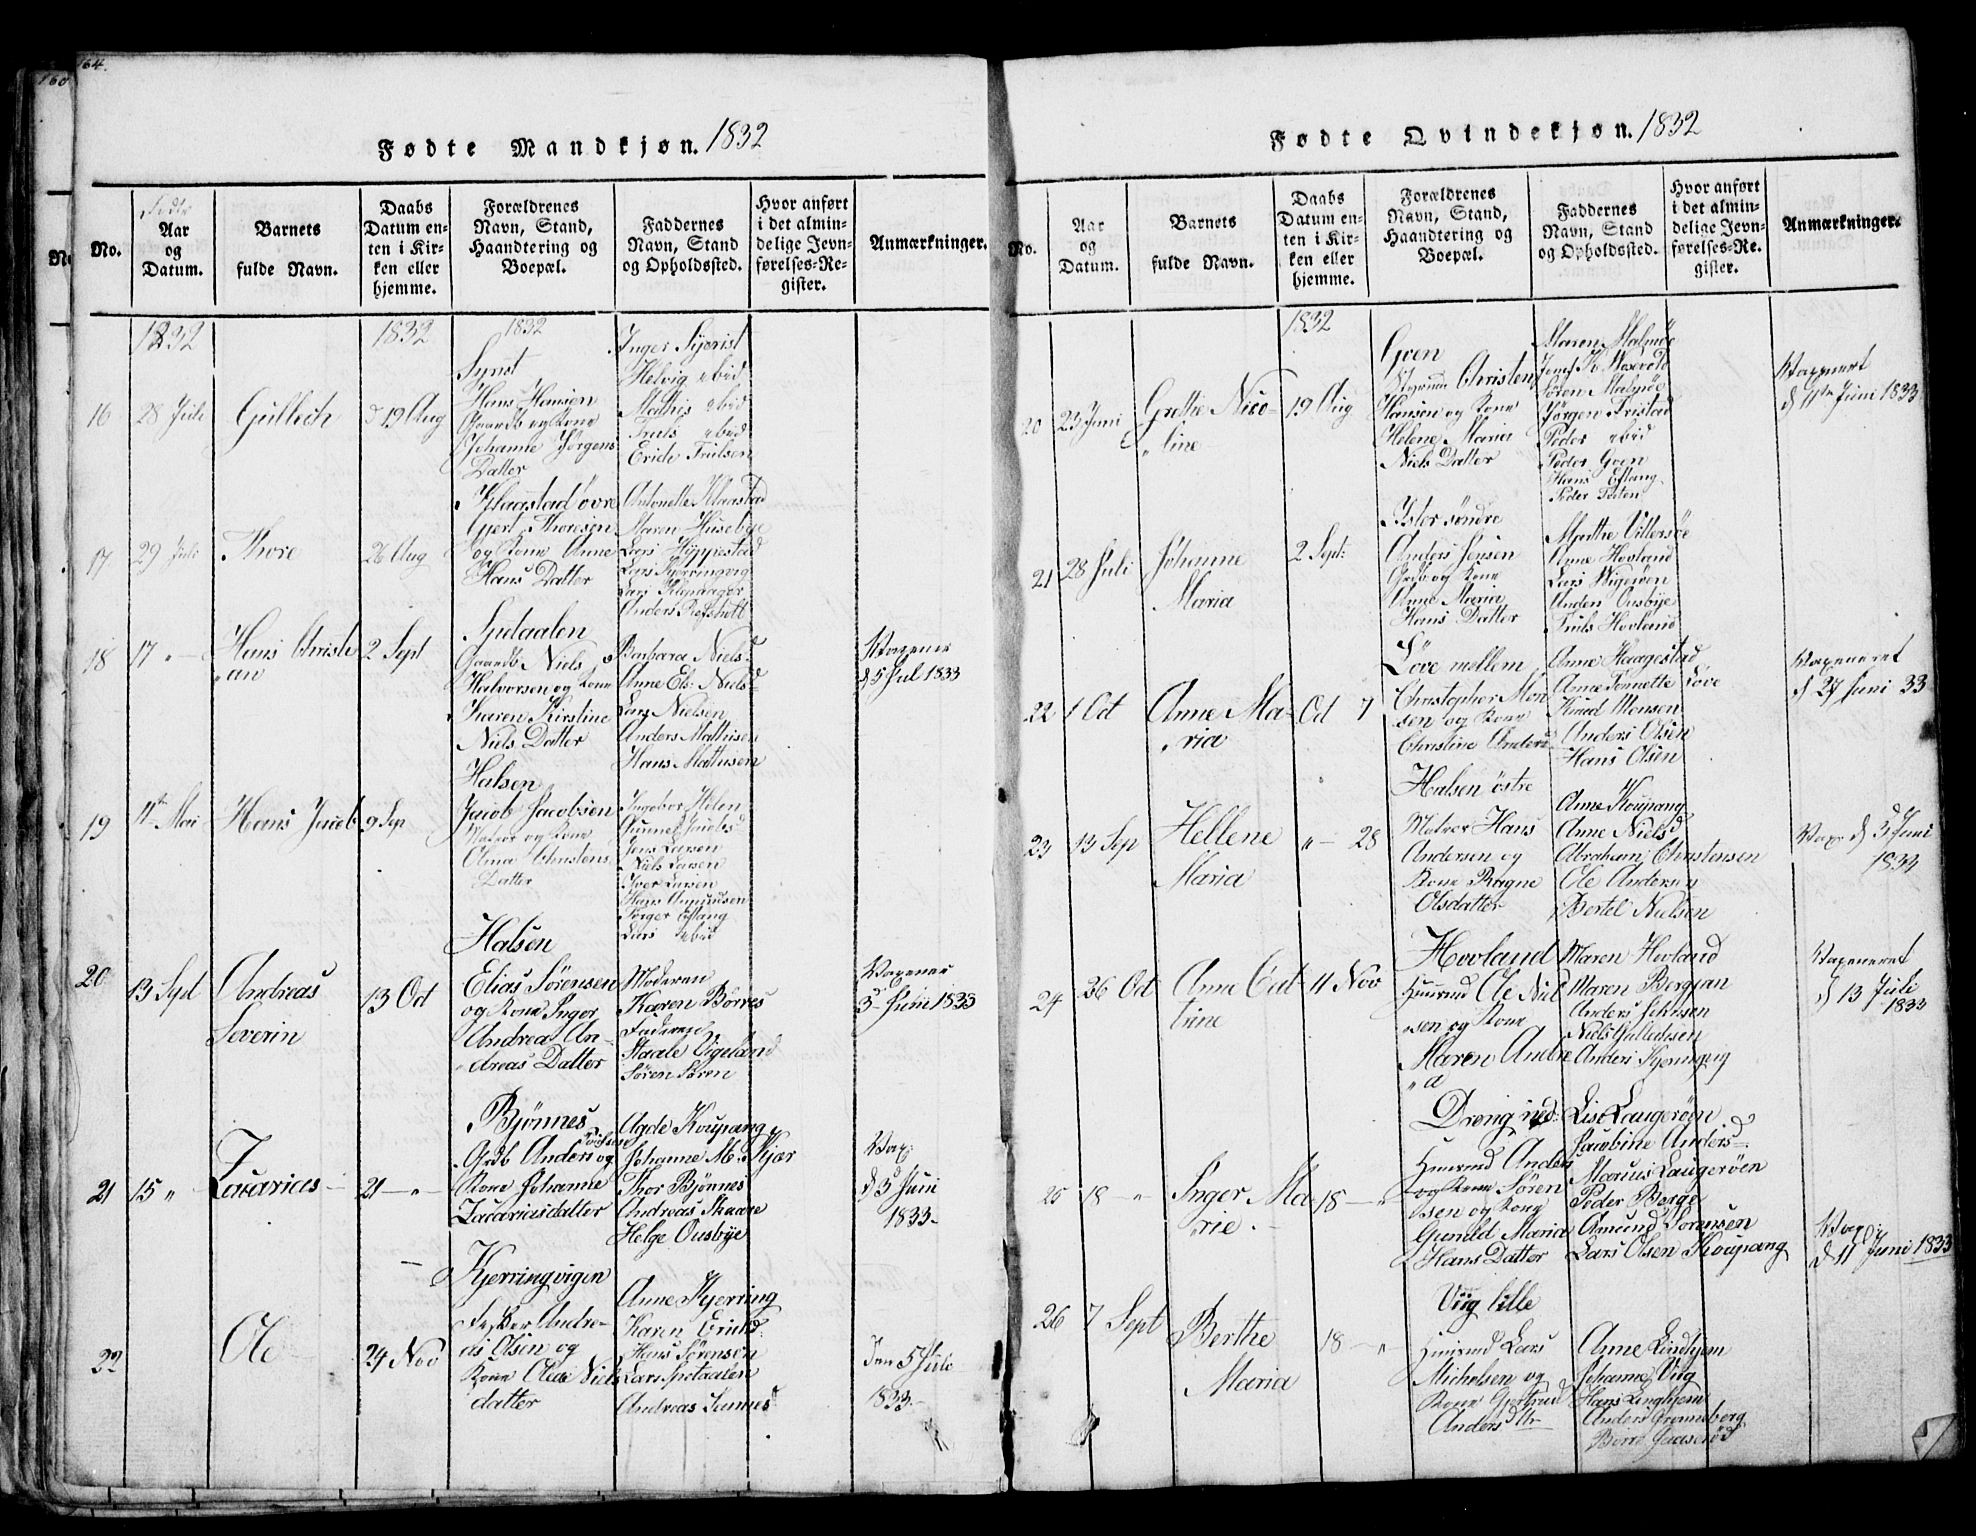 164.
160
Fødte Mandkjøn. 1832
No.
Fødte
Aar
og
Datum.
Barnets
fulde Navn.
Daabs
Datum en-
ten i Kir-
ken eller
hjemme.
Forældrenes
Navn, Stand,
Haandtering og
Boepæl.
Faddernes
Navn, Stand
og Opholdssted.
Hvor anført
i det almin-
delige Jevn-
førelses-Re-
gister.
Anmærkninger.
1832
1832
1832
16
28 Juli
Gullech
d 19 Aug
Hans Hansen
Gaardb og Kone
Johanne Jørgens
Datter
Helvig ibid
Mathis ibid
Truls ibid
Erich Trulsen
17
29 Juli
Thore
26 Aug
Klaastad øvre
Gjert Thoresen
og Kone Anne
Hans Datter
Antonette Klaastad
Maren Huseby
Lars Hyppestad
Lars Kjerringvig
Anders Refsholt
18
17 "
Hans Christi
an
2 Sept
Spetaalen
Gaardb Niels
Halvorsen og Kone
Karen Kirstine
Niels Datter
Barbara Nielsd
Anne Els: Nielsd
Lars Nielsen
Anders Mathisen
Hans Mathisen
Vaxener
d 5 Jul 1833
19
11te Mai
Hans Jacob
9 Sep
Halsen
Jacob Jacobsen
Matros og Kone
Christens
Datter
Ingebor Halsen
Gunnel Jacobsd
Jens Larsen
Niels Larsen
Iver Larsen
Hans Amundsen
Torger Eftang
Lars ibid
20
13 Sept
Andreas
Severin
13 Oct
Halsen
Elias Sørensen
og Kone Inger
Andrea An-
dreas Datter
Moderen
Karen Børres
Faderen
Staale Vigeland
Søren Søren
Vaxener
3 Juni 1833
21
15 "
Zacarias
21 - " -
Bjønnes
Grdb Anders
og
Kone Johanne
Zacariasdatter
Agde Koupang
Johanne M. Kjær
Thor Bjønnes
Andreas Skaare
Helge Ousbye
Vax:
d 3 Juni
1833-
22
Ole
24 Nov
Kjerringvigen
Fisker Andre-
as Olsen og
Kone Olea Niels
datter
Anne Kjerring
Karen Ericsd
Hans Sørensen
Lars Spetaalen
Andreas Sunnes
Den 5 Juli
1833.-
Fødte Qvindekjøn. 1832
No.
Aar
og
Datum.
Barnets
fulde Navn.
Daabs
Datum en-
ten i Kir-
ken eller
hjemme.
Forældrenes
Navn, Stand,
Haandtering og
Boepæl.
Faddernes
Navn, Stand
og Opholdssted.
Hvor anført
i det almin-
delige Jevn-
førelses-Re-
gister.
Anmærkninger.
1832
20
23 Juni
Grethe Nico-
line
19 Aug
Goen
Styrmd Christen
Hansen og Kone
Helene Maria
Niels Datter
Maren Malmøe
Søren Malmøe
Jørgen Fristad
Peder ibid
Peder Goen
Hans Eftang
Peder Peten
Vaxenert
d 11te Juni 1833
21
28 Juli
Johanne
Maria
2 Sept:
Ister søndre
Anders Jensen
Grdb og Kone
Anne Maria
Hans Datter
Marthe Villersøe
Anne Hovland
Lars Wigerøen
Anders Ousbye
Truls Hovland
22
1 Oct
Anne Ma-
ria
Oct 7
Løve mellem
Christopher Mon
sen og Kone
Christine Anders
Anne Haagestad
Anne Tonnette Løve
Knud Monsen
Anders Olsen
Hans Olsen
Vaxeneret
d 27 Juni 33
23
13 Sep
Hellene
Maria
" - 28
Halsen østre
Matros Hans
Andersen og
Kone Ragne
Olsdatter
Anne Koupang
Anne Nielsd
Abraham Christensen
Ole Andersen
Bertel Nielsen
Vax: d 3 Juni
1833
24
26 Oct
Anne Cat
trine
11 Nov
Hovland
Huusmd Ole Niel
sen og Kone
Maren Andre
a
Maren Hovland
Maren Bergjan
Anders Johnsen
Niels Gullechsen
Anders Kjerringvig
Vaxeneret
d 13 Juli
1833
25
18 - "
Inger Ma
rie.-
18 - "
Dreng ned:
Huusmd Anders
og Kone Søren
sen og Kone
Gunild Maria
Hans Datter
Lise Laugerøen
Jacobine Andersd
Marius Laugerøen
Peder Berge
Amund Sørensen
Lars Olsen Koupang
Vax:
d 11 Juni 1833
26
7 Sept
Berthe
Maria
18 - "
Viig lille
Huusmd Lars
Michelsen og
Kone Gjertrud
Anders dtr
Anne Lindhjem
Johanne Viig
Hans Linghjem
Anders Grønneberg
Børre Gaaserød